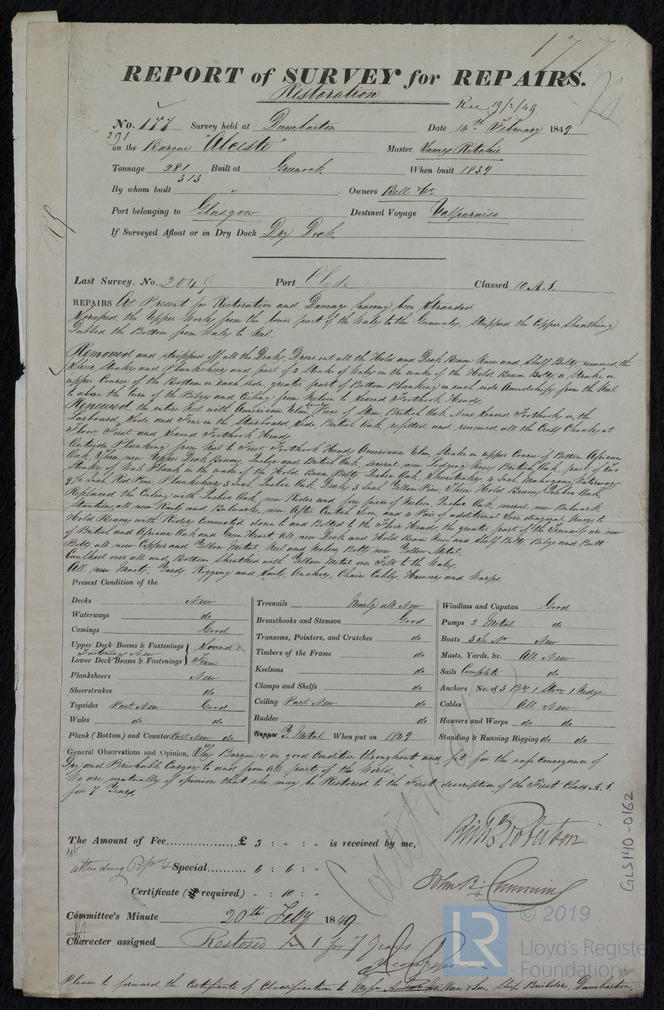 177
REPORT of SURVEY for REPAIRS.
Restoration
Rec 19/2/49
No. 177 Survey held at Dumbarton Date 14th February 1849
291
on the Barque "Alceste" Master James Ritchie
Tonnage 281 Built at Greenock When built 1839
313
By whom built " Owners Bell & Co
Port belonging to Glasgow Destined Voyage Valparaiso
If Surveyed Afloat or in Dry Dock Dry Dock.
Last Survey, No. 2049 Port Clyde Classed 10 A.1.
REPAIRS At Present for Restoration and Damage having been Stranded
Scraped the Upper Works from the lower part of the Wales to the Gunwales, stripped the Copper Sheathing
Dubbed the Bottom from Wales to Keel.
Removed and stripped off all the Decks, Drove out all the Hold and Deck Beam Knee and Shelf Bolts, removed the
Sheer Strakes and Planksheers and part of 2 Strakes of Wales in the wake of the Hold Beam Bolts, a Strake in
upper Course of the Bottom on each side, greater part of Bottom Planking on each side Amidships from the Keel
to above the turn of the Bilges and Ceiling from Kelson to Second Foothook Heads.
Renewed the entire Keel with American Elm, Piece of Stem, British Oak, Nine Second Foothooks on the
Larboard Side and Four on the Starboard Side British Oak, refitted and renewed all the Chocks at
Floor, First and Second Foothook Heads
Outside Planking from Keel to First Foothook Heads American Elm, Strake in upper Course of Bottom African
Oak, Three new Upper Deck Beams, Lodge and British Oak, several new Lodging Knees British Oak, part of two
Strakes of Wale Plank in the wake of the Hold Beam Bolts, Quebec Oak, Sheerstrakes, 4 Inch Mahogany, Waterways
Red Pine, Planksheers 3 Inch Quebec Oak, Decks 3 Inch Yellow Pine, Three Hold Beams Quebec Oak,
Replaced the Ceiling with Quebec Oak, new Riders and one piece of Kelson Quebec Oak, several new Bulwark
Stanchions, all new Rails and Bulwarks, new After Cutch Iron and a Pair of additional Iron diagonal Knees to
Hold Beams with Riders Connected down to and Bolted to the Floor Heads, the greater part of the Treenails are new
of British and African Oak and Green Heart All new Deck and Hold Beam Knee and Shelf Bolts, Bilge and Butt
Bolts all new Copper and Yellow Metal, Keel and Kelson Bolts new Yellow Metal.
Caulked over all and Bottom Sheathed with Yellow Metal over Felt to the Wales.
All new Masts, Yards, Rigging and Sails, Anchors, Chain Cables, Hawsers and Warps.
Present Condition of the
Decks New
Waterways do
Comings Good
Upper Deck Beams & Fastenings Sound &
Fastening New
Lower Deck Beams & Fastenings Firm
Planksheers New
Sheerstrakes do
Topsides Part New Good
Wales do do
Plank (Bottom) and Counter Part New do
Treenails Nearly all New
Breasthooks and Stemson Good
Transoms, Pointers, and Crutches do
Timbers of the Frame do
Keelsons do
Clamps and Shelfs do
Ceiling Part New do
Rudder do
Copper Y. Metal When put on 1849
Windlass and Capstan Good
Pumps 2 Metal do
Boats 3 in No. New
Masts, Yards, &c. All New
Sails Complete do
Anchors No. of 3 Brs. 1 Strm. 1 Kedge
Cables All New
Hawsers and Warps do do
Standing & Running Rigging do do
General Observations and Opinion, This Barque is in good Condition throughout and fit for the safe conveyance of
Dry and Perishable Cargoes to and from all parts of the World.
We are mutually of opinion that she may be Restored to the First description of the First Class A.1.
for 7 Years.
The Amount of Fee £ 3 : - : - is received by me,
attending Special 6 : 6 : -
Certificate (if required) - : 10 : -
John B. Cumming
Committee's Minute 20th Feby 1849
Character assigned Restored A 1 for 7 years
Please to forward the Certificate of Classification to Messrs A. McMillan & Son, Ship Builders, Dumbarton.
GLS140-0162
LR
© 2019
Lloyd's Register
Foundation